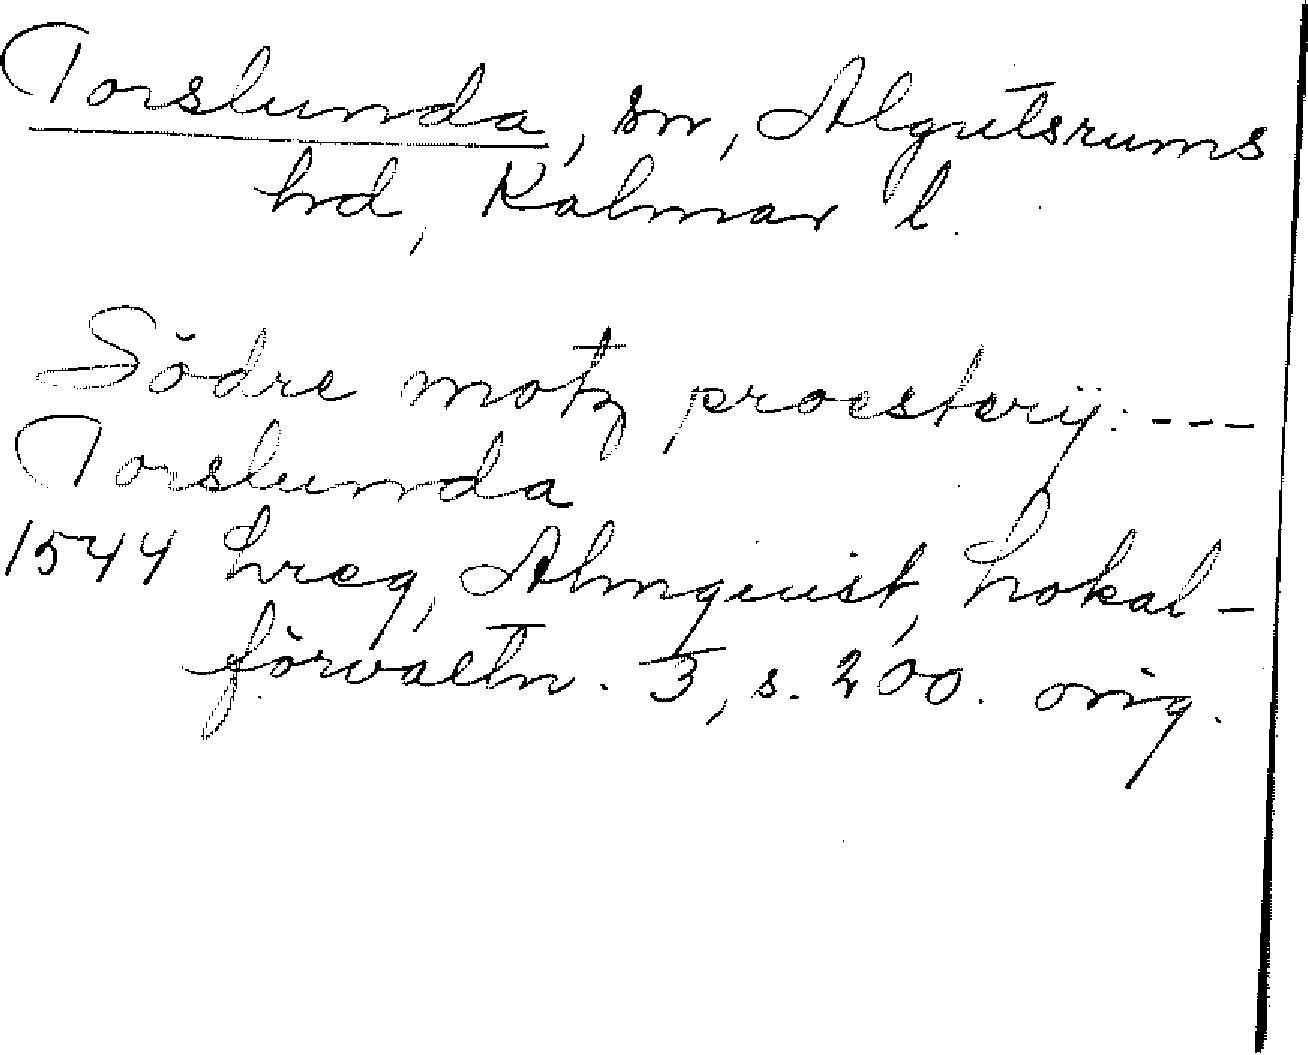 Torslunda, sn, Algutsrums
hd, Kalmar l.
Södre motz proesterij: ---
Torslunda
1544 Lreg, Almquist, Lokal-
förvaltn. 3, s. 200. orig.